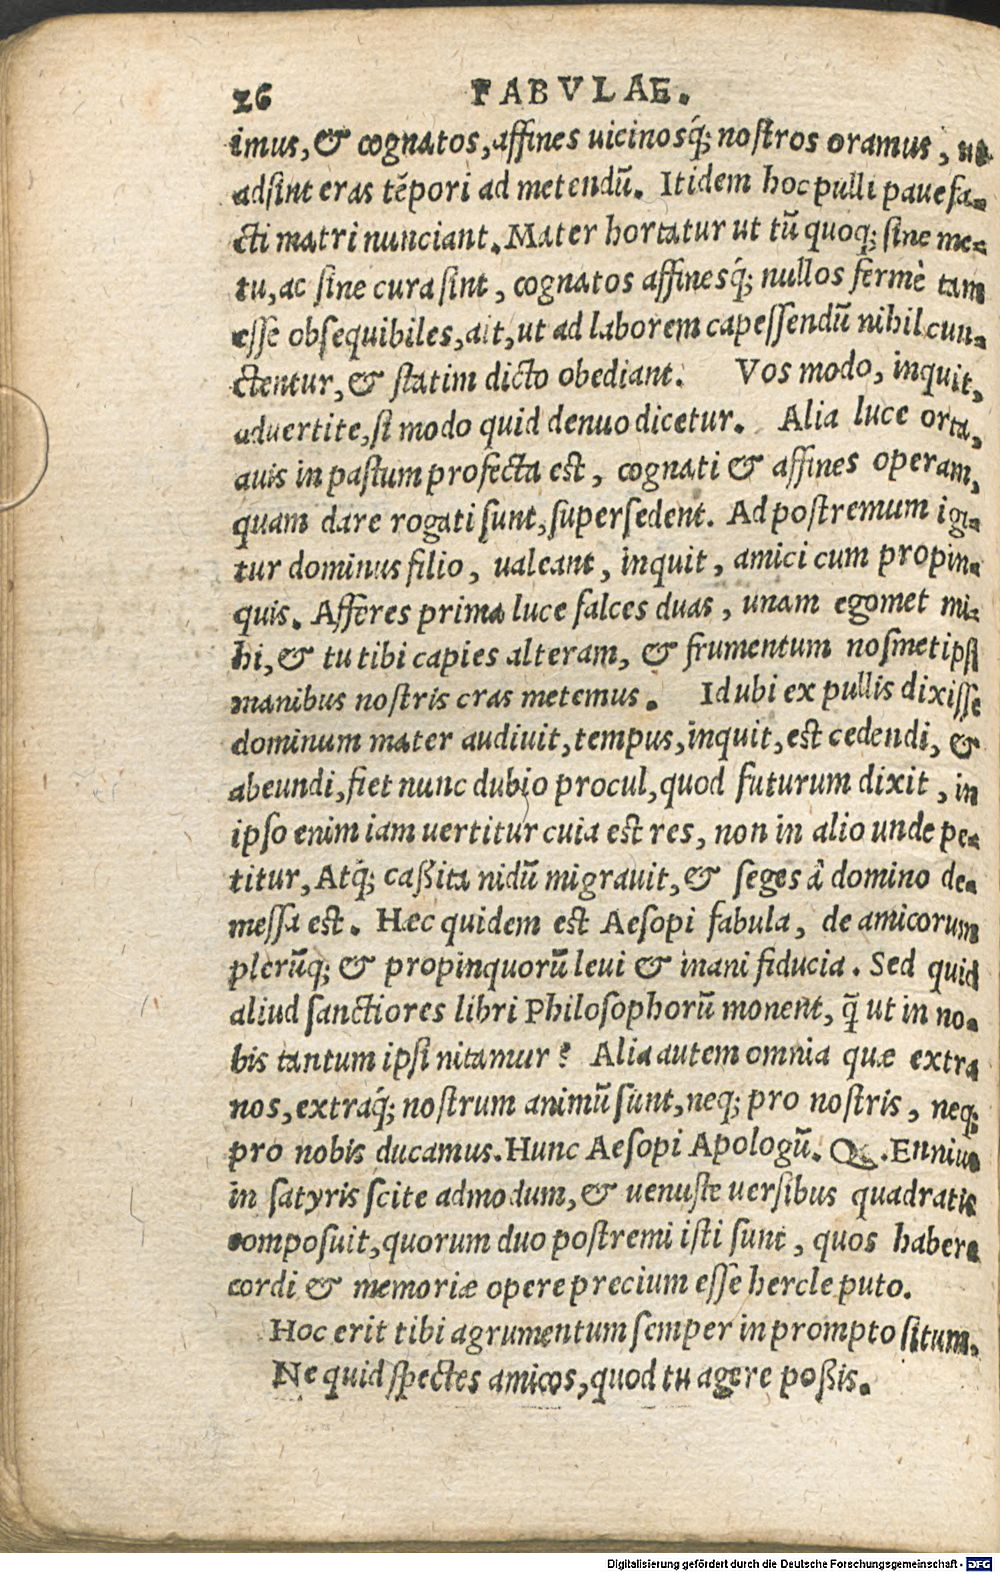 26 FABVLAE.
imus, & cognatos, affines uicinosq́; nostros oramus, ut
adsint cras tẽpori ad metendũ. Itidem hoc pulli pauefa-
cti matri nunciant. Mater hortatur ut tũ quoq; sine me-
tu, ac sine cura sint, cognatos affinesq́; nullos fermè tam
esse obsequibiles, ait, ut ad laborem capessendũ nihil cun-
ctentur, & statim dicto obediant. Vos modo, inquit,
aduertite, si modo quid denuo dicetur. Alia luce orta,
auis in pastum profecta est, cognati & affines operam,
quam dare rogati sunt, supersedent. Ad postremum igi-
tur dominus filio, ualeant, inquit, amici cum propin-
quis. Afferes prima luce falces duas, unam egomet mi-
hi, & tu tibi capies alteram, & frumentum nosmetipsi
manibus nostris cras metemus. Id ubi ex pullis dixisse
dominum mater audiuit, tempus, inquit, est cedendi, &
abeundi, fiet nunc dubio procul, quod futurum dixit, in
ipso enim iam uertitur cuia est res, non in alio unde pe-
titur, Atq́; caßita nidũ migrauit, & seges â domino de-
messa est. Hæc quidem est Aesopi fabula, de amicorum
plerũq; & propinquorũ leui & inani fiducia. Sed quid
aliud sanctiores libri Philosophorũ monent, q̃ ut in no-
bis tantum ipsi nitamur? Alia autem omnia quæ extra
nos, extraq́; nostrum animũ sunt, neq; pro nostris, neq;
pro nobis ducamus. Hunc Aesopi Apologũ. Q. Ennius
in satyris scite admodum, & uenuste uersibus quadratis
composuit, quorum duo postremi isti sunt, quos habere
cordi & memoriæ opere precium esse hercle puto.
Hoc erit tibi agrumentum semper in prompto situm.
Ne quid spectes amicos, quod tu agere poßis.
Digitalisierung gefördert durch die Deutsche Forschungsgemeinschaft - DFG